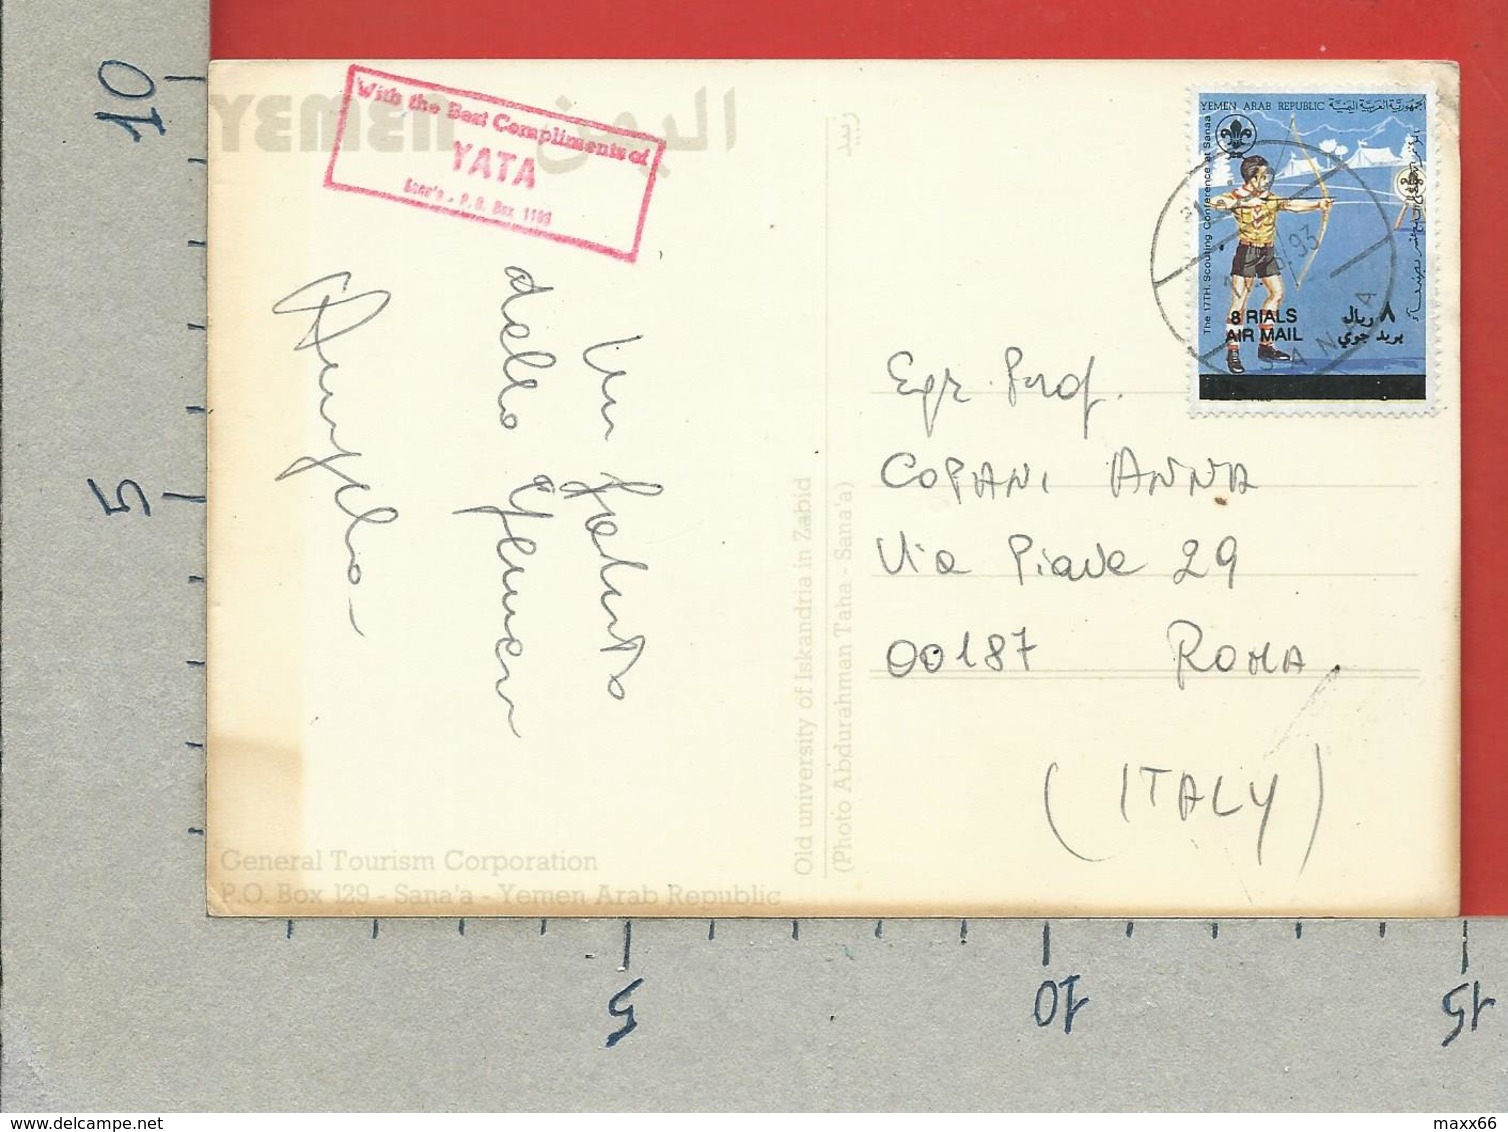 YEMEN اليمن
With the Best Compliments of
YATA
Sana'a - P.O. Box 1109
Un saluto
dallo Yemen
Angelo
زبيد
Old university of Iskandria in Zabid
(Photo Abdurahman Taha - Sana'a)
General Tourism Corporation
P.O. Box 129 - Sana'a - Yemen Arab Republic
YEMEN ARAB REPUBLIC الجمهورية العربية اليمنية
The 17TH. Scouting Conference at Sanaa
8 RIALS ٨ ريال
AIR MAIL بريد جوي
93
SANA'A
Egr. Prof.
COPANI ANNA
Via Piave 29
00187 ROMA
(ITALY)
10
5
5
10
15
www.delcampe.net
maxx66